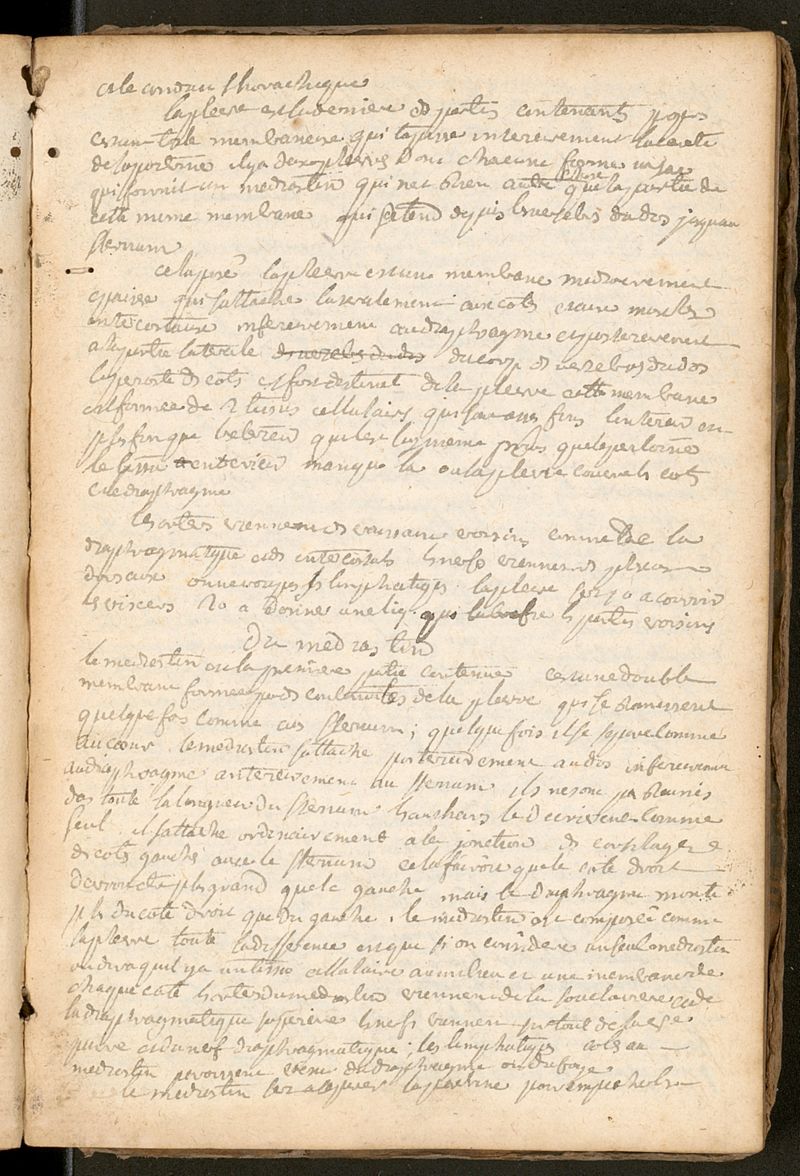 et le conduit thorachique
la plevre est la derniere des parties contenants propes
c'est une toile membraneuse qui tapisse interieurement la cavité
de la poitrine il y a deux plevres dont chacune forme un sac
qui fournit un mediastin qui n'est rien autre chose que la partie de
cette meme membrane qui s'etend depuis les vertebres du dos jusqu'au
sternum
cela posé la plevre est une membrane mediocrement
epaisse qui s'attache lateralement aux cotes et aux muscles
intercostaux inferieurement au diaphragme et posterieurement
a la partie laterale des vertebres du dos du corps des vertebres du dos
la perioste des cotes est fort distinct de la plevre cette membrane
est formée de 2 tissus cellulaires qui sont assez fins l'interieur est
plus fin que l'exterieur
le tissu exterieur manque la ou la plevre couvre les cotes
et le diaphragme
les arteres viennent des vaisseaux voisins comme de la
diaphragmatique et des intercostales les nerfs viennent des
dorsaux on ne voit pas les lymphatiques la plevre sert 1o a couvrir
les visceres 2o a donner une liq. qui lubrefie les parties voisines
Du mediastin
le mediastin ou la premiere partie contenue est une double
membrane formee par les continuités de la plevre qui se reunissent
quelque fois comme au sternum ; quelque fois il se separe comme
au coeur. le mediastin s'attache posterieurement au dos inferieurement
au diaphragme anterieurement au sternum ils ne sont pas reunis
dans toute la longueur du sternum le decrivent comme
seul. il s'attache ordinairement a la jonction des cartilages
des cotes gauches avec le sternum cela fait voir que le coté droit
devroit etre plus grand que le gauche mais le diaphragme monte
plus du coté droit que du gauche. le mediastin est composé comme
la plevre toute la difference est que si on considere un seul mediastin
on dira qu'il y a un tissu cellulaire au milieu et une membrane de
chaque coté les arteres du mediastin viennent de la souclaviere et de
la diaphragmatique superieure les nerfs viennent surtout de la
paire et du nerf diaphragmatique ; les lymphatiques
mediastin peuvent venir du diaphragme ou du foye
le mediastin sert a separer la poitrine pour empecher